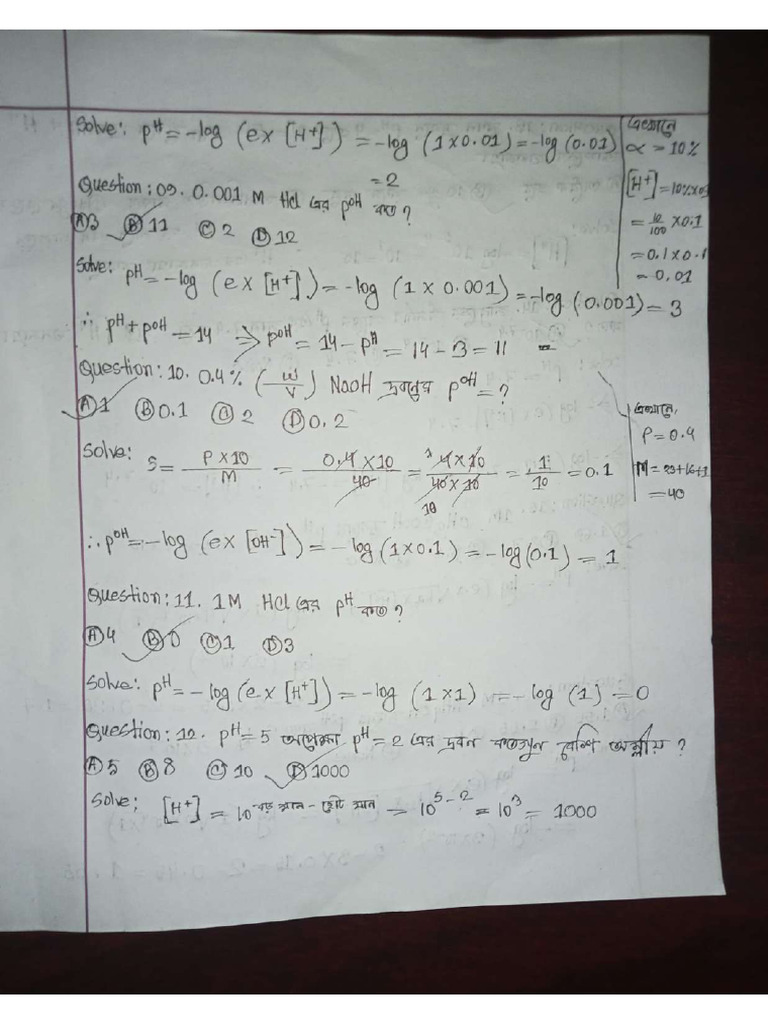 Solve: pH = -log (e × [H+]) = -log (1×0.01) = -log (0.01)
= 2
এখানে
α = 10%
[H+] = 10%×0.1
= 10/100 × 0.1
= 0.1 × 0.1
= 0.01
Question: 09. 0.001 M HCl এর pOH কত?
(A) 3 (B) 11 (C) 2 (D) 12
Solve: pH = -log (e × [H+]) = -log (1 × 0.001) = -log (0.001) = 3
∴ pH + pOH = 14 ⇒ pOH = 14 - pH = 14 - 3 = 11
Question: 10. 0.4% (w/v) NaOH দ্রবনের pOH = ?
(A) 1 (B) 0.1 (C) 2 (D) 0.2
এখানে,
P = 0.4
M = 23+16+1
= 40
Solve: S = P×10/M = 0.4×10/40 = 1 4×10/40×10 10 = 1/10 = 0.1
∴ pOH = -log (e × [OH-]) = -log (1×0.1) = -log (0.1) = 1
Question: 11. 1M HCl এর pH কত?
(A) 4 (B) 0 (C) 1 (D) 3
Solve: pH = -log (e × [H+]) = -log (1×1) = -log (1) = 0
Question: 12. pH = 5 অপেক্ষা pH = 2 এর দ্রবন কতগুন বেশি অম্লীয়?
(A) 5 (B) 8 (C) 10 (D) 1000
Solve: [H+] = 10 বড় মান - ছোট মান = 10^5-2 = 10^3 = 1000